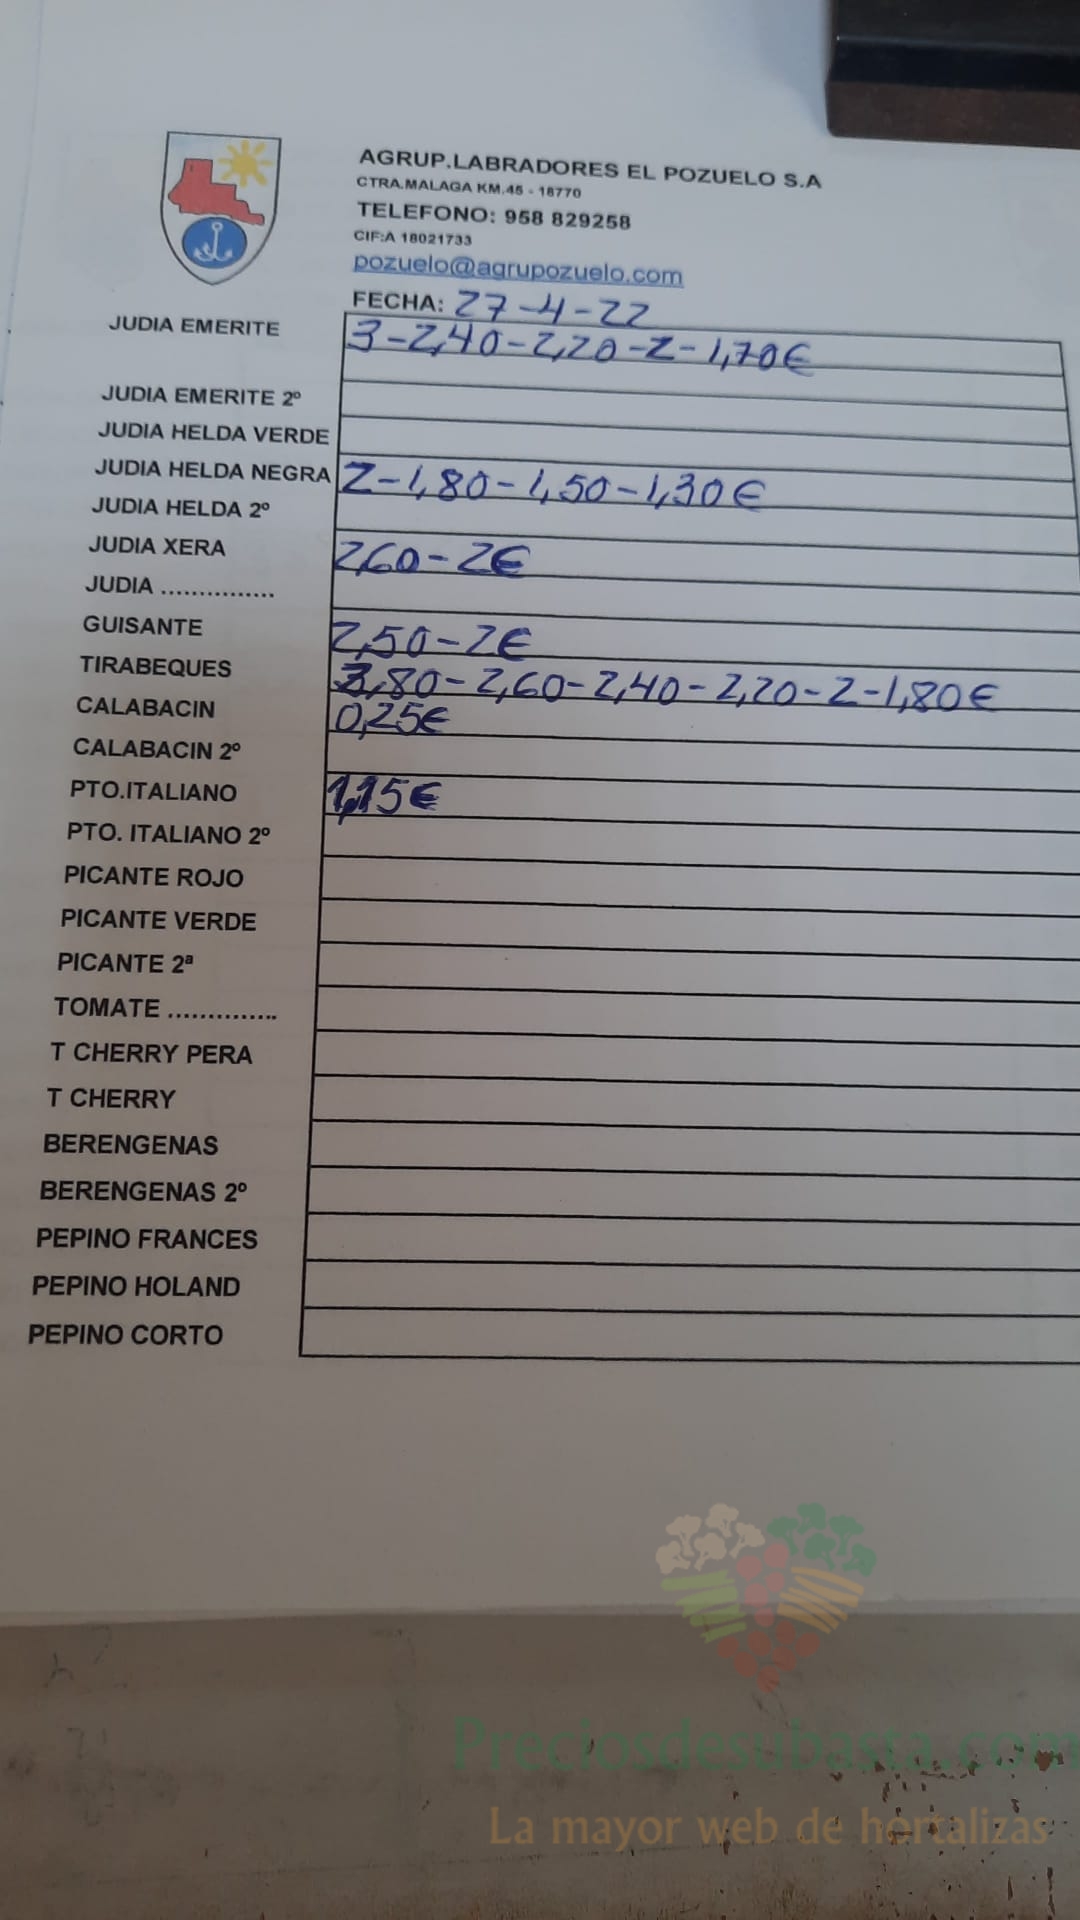 AGRUP.LABRADORES EL POZUELO S.A
CTRA.MALAGA KM.45 - 18770
TELEFONO: 958 829258
CIF:A 18021733
pozuelo@agrupozuelo.com
FECHA: 27-4-22
JUDIA EMERITE 3-2,40-2,20-2-1,70€
JUDIA EMERITE 2º
JUDIA HELDA VERDE
JUDIA HELDA NEGRA 2-1,80-1,50-1,30€
JUDIA HELDA 2º
JUDIA XERA 2,60-2€
JUDIA ...............
GUISANTE 2,50-2€
TIRABEQUES 3,80-2,60-2,40-2,20-2-1,80€
CALABACIN 0,25€
CALABACIN 2º
PTO.ITALIANO 1,15€
PTO. ITALIANO 2º
PICANTE ROJO
PICANTE VERDE
PICANTE 2ª
TOMATE ..............
T CHERRY PERA
T CHERRY
BERENGENAS
BERENGENAS 2º
PEPINO FRANCES
PEPINO HOLAND
PEPINO CORTO
Preciosdesubasta.com
La mayor web de hortalizas